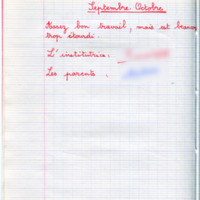 Septembre Octobre
Assez bon travail, mais est beaucoup
trop étourdi.
L'institutrice :
Les parents :